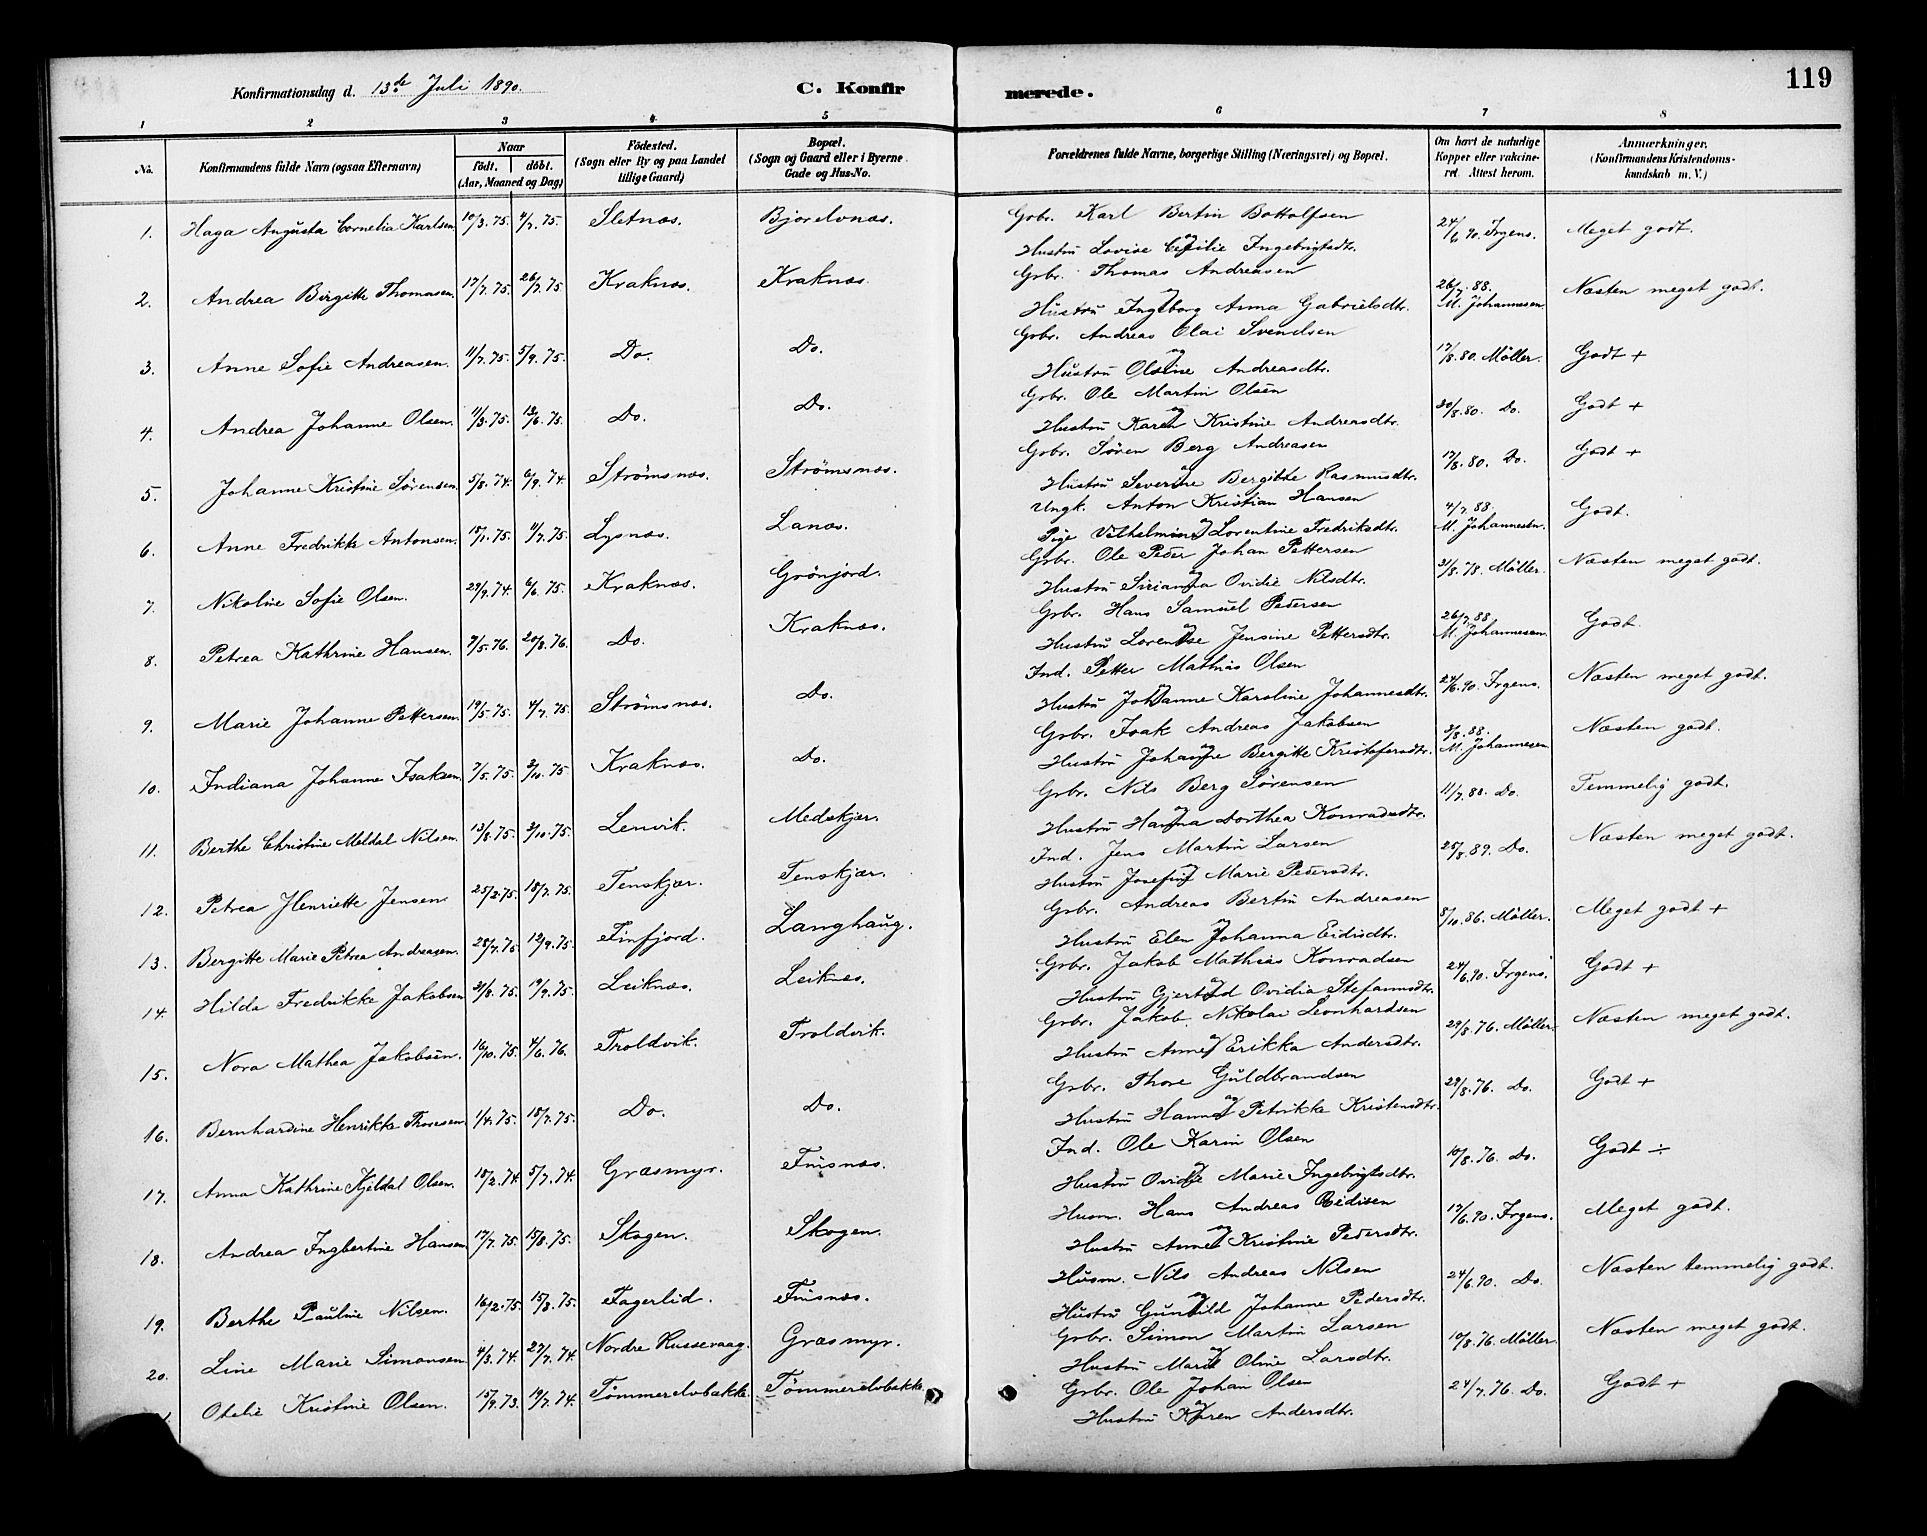 119
Konfirmationsdag d. 13de Juli 1890.
C. Konfirmerede.
1 2 3 4 5 6 7 8
No. Konfirmandens fulde Navn (ogsaa Efternavn) Naar født. døbt. (Aar, Maaned og Dag) Fødested. (Sogn eller By og paa Landet tillige Gaard) Bopæl. (Sogn og Gaard eller i Byerne Gade og Hus-No. Forældrenes fulde Navne, borgerlige Stilling (Næringsvei) og Bopæl. Om havt de naturlige Kopper eller vakcineret. Attest herom. Anmærkninger. (Konfirmandens Kristendomskundskab m. V.)
1. Haga Augusta Cornelia Karlsen 10/3.75. 4/7.75. Sletnæs. Bjorelvnæs. Gbr. Karl Bertin Bottolfsen og Hustru Lovise Cecilie Ingebrigtsdtr. 24/6 90. Irgens. Meget godt.
2. Andrea Birgitte Thomasen. 17/7.75. 26/7.75. Kraknæs. Kraknæs. Gbr. Thomas Andreasen og Hustru Ingeborg Anna Gabrielsdtr. 26/7.88. M. Johannesen Næsten meget godt.
3. Anne Sofie Andreasen. 11/7.75. 5/9.75. Do. Do. Gbr. Andreas Olai Svendsen og Hustru Olsine Andreasdtr. 17/8.80. Möller. Godt +
4. Andrea Johanne Olsen. 11/3.75. 13/6.75. Do. Do. Gbr. Ole Martin Olsen og Hustru Karen Kristine Andreasdtr. 20/8.80. Do. Godt +
5. Johanne Kristine Sörensen. 5/8.74. 6/9.74. Strömsnæs. Strömsnæs. Gbr. Sören Berg Andreasen og Hustru Severine Bergitte Rasmusdtr. 17/8.80. Do. Godt +
6. Anne Fredrikke Antonsen. 18/1.75. 11/7.75. Lysnæs. Lanæs. Ungk. Anton Kristian Hansen og Pige Vilhelmine Lorentine Fredriksdtr. 4/7.88. M. Johannesen. Godt.
7. Nikoline Sofie Olsen. 29/9.74. 6/6.75. Kraknæs. Grönjord. Gbr. Ole Peder Johan Pettersen og Hustru Sirianna Ovidie Nilsdtr. 31/8.78. Möller. Næsten meget godt.
8. Petrea Kathrine Hansen. 7/5.76. 20/8.76. Do. Kraknæs. Gbr. Hans Samuel Pedersen og Hustru Lorentse Jensine Pettersdtr. 26/7.88 M. Johannesen Godt.
9. Marie Johanne Pettersen. 19/5.75. 4/7.75. Strömsnæs. Do. Ind. Petter Mathias Olsen og Hustru Johanne Karoline Johannesdtr. 24/6.90. Irgens. Næsten meget godt.
10. Indiana Johanne Isaksen. 7/5.75. 3/10.75 Kraknæs. Do. Gbr. Isak Andreas Jakobsen og Hustru Johanne Bergitte Kristofersdtr. 3/8.88. M. Johannesen Næsten godt.
11. Berthe Christine Meldal Nilsen. 13/8.75. 3/10.75. Lenvik. Medskjær. Gbr. Nils Berg Sörensen og Hustru Hanna Dorthea Konradsdtr. 11/7.88. Do. Temmelig godt.
12. Petrea Henriette Jensen 25/2.75. 18/7.75. Tenskjær. Tenskjær. Ind. Jens Martin Larsen og Hustru Josefine Marie Pedersdtr. 25/8.89. Do. Næsten meget godt.
13. Bergitte Marie Petrea Andreasen. 28/7.75. 12/9.75. Finfjord. Langhaug. Gbr. Andreas Bertin Andreasen og Hustru Elen Johanna Eidisdtr. 8/10.86. Möller. Meget godt +
14. Hilda Fredrikke Jakobsen 31/8.75. 19/9.75. Leiknæs. Leiknæs. Gbr. Jakob Mathias Konradsen og Hustru Gjertrud Ovidia Stefansdtr. 24/6.90. Irgens. Godt +
15. Nora Mathea Jakobsen. 16/10.75. 4/6.76. Troldvik. Troldvik. Gbr. Jakob Nikolai Leonhardsen og Hustru Anne Erikka Andersdtr. 29/8.76. Möller. Næsten meget godt.
16. Bernhardine Henrikke Thoresen. 1/4.75. 18/7.75. Do. Do. Gbr. Thore Guldbrandsen og Hustru Hanna Petrikke Kristensdtr. 29/8.76. Do. Godt +
17. Anna Kathrine Kjeldal Olsen. 18/2.74. 5/7.74. Græsmyr. Finsnæs. Ind. Ole Karin Olsen og Hustru Ovidie Marie Ingebrigtsdtr. 10/8.76. Do. Godt ÷
18. Andrea Ingbertine Hansen 17/7.75. 15/8.75. Skogen. Skogen. Husm. Hans Andreas Eidisen og Hustru Anne Kristine Pedersdtr. 17/6.90. Irgens. Meget godt.
19. Berthe Pauline Nilsen. 16/2.75. 15/8.75. Fagerlid. Finsnæs. Husm. Nils Andreas Nilsen og Hustru Gunhild Johanne Pedersdtr. 24/6.90. Do. Næsten temmelig godt.
20. Line Marie Simonsen 4/3.74. 27/7.74. Nordre Russevaag. Græsmyr. Gbr. Simon Martin Larsen og Hustru Marie Oline Larsdtr. 10/8.76. Möller. Næsten meget godt.
Otelie Kristine Olsen. 15/9.73. 19/7.74. Tömmerelvbakke. Tömmerelvbakke. Gbr. Ole Johan Olsen og Hustru Karen Andersdtr. 24/7.76. Do. Godt +